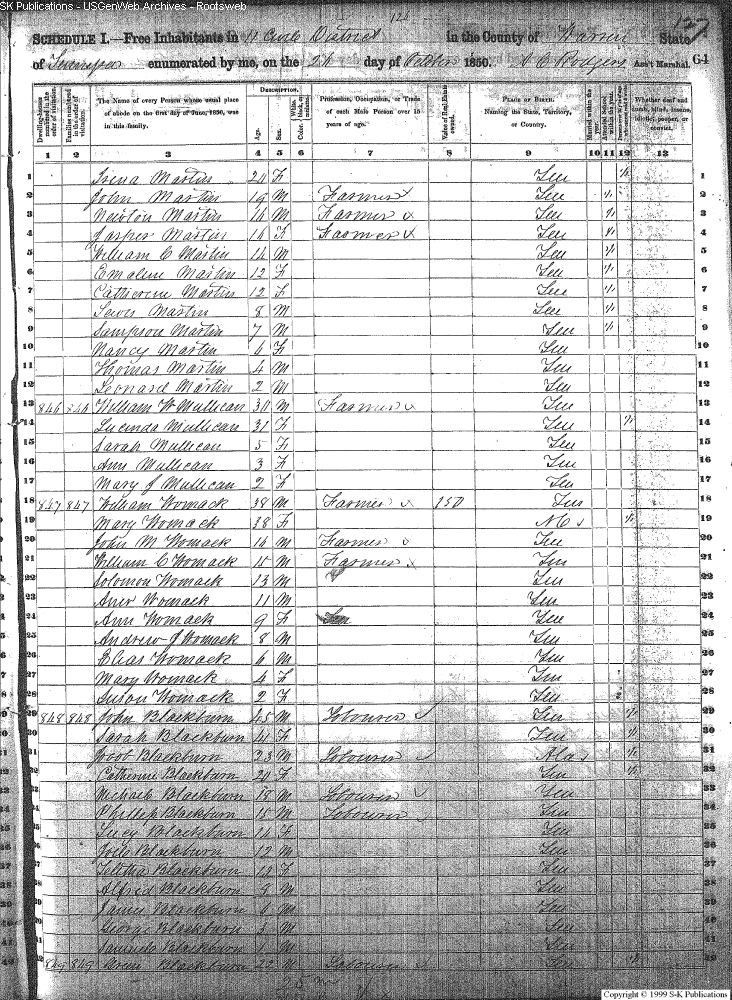 SK Publications - USGenWeb Archives - Rootsweb
127
SCHEDULE I.—Free Inhabitants in District in the County of Warren State
of enumerated by me, on the day of 1850. Rodgers Ass't Marshal. 64
Dwelling-houses numbered in the order of visitation.
Families numbered in the order of visitation.
The Name of every Person whose usual place of abode on the first day of June, 1850, was in this family.
DESCRIPTION.
Age.
Sex.
Color
Profession, Occupation, or Trade of each Male Person over 15 years of age.
Value of Real Estate owned.
PLACE OF BIRTH. Naming the State, Territory, or Country.
Married within the year.
Whether deaf and dumb, blind, insane, idiotic, pauper, or convict.
1 2 3 4 5 6 7 8 9 10 11 12 13
1 Irena Martin 20 F Ten 1
2 John Martin 19 M Farmer Ten 2
3 Newton Martin 16 M Farmer Ten 3
4 Jasper Martin 16 F Farmer Ten 4
5 William C Martin 14 M Ten 5
6 Emaline Martin 12 F Ten 6
7 Catherine Martin 12 F Ten 7
8 Lewis Martin 8 M Ten 8
9 Sampson Martin 7 M Ten 9
10 Nancy Martin 6 F Ten 10
11 Thomas Martin 4 M Ten 11
12 Leonard Martin 2 M Ten 12
13 846 846 William W Mullican 30 M Farmer Ten 13
14 Lucinda Mullican 31 F Ten 14
15 Sarah Mullican 5 F Ten 15
16 Ann Mullican 3 F Ten 16
17 Mary J Mullican 2 F Ten 17
18 847 847 William Womack 38 M Farmer 150 Ten 18
19 Mary Womack 38 F 19
20 John M Womack 16 M Farmer Ten 20
21 William C Womack 15 M Farmer Ten 21
22 Solomon Womack 13 M Ten 22
23 Womack 11 M Ten 23
24 Ann Womack 9 F Ten 24
25 Andrew J Womack 8 M Ten 25
26 Elias Womack 6 M Ten 26
27 Mary Womack 4 F Ten 27
28 Susan Womack 2 F Ten 28
29 848 848 John Blackburn 45 M Labourer Ten 29
30 Sarah Blackburn 41 F Ten 30
31 Blackburn 23 M Labourer Ala 31
32 Catherine Blackburn 20 F Ten 32
33 Michael Blackburn 18 M Labourer Ten 33
34 Phillip Blackburn 15 M Labourer Ten 34
35 Lucy Blackburn 14 F Ten 35
Blackburn 12 M Ten
Letitha Blackburn 12 F Ten
Alfred Blackburn 8 M Ten
James Blackburn 6 M Ten
George Blackburn 3 M Ten
Blackburn 1 M Ten
849 849 Blackburn 22 M Labourer Ten
Copyright © 1999 S-K Publications